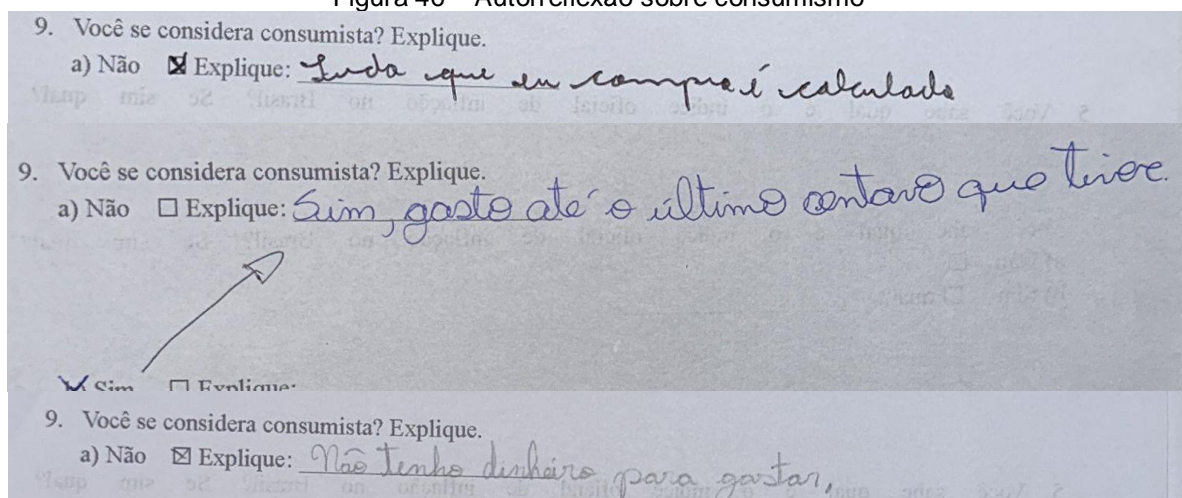 Figura 40 – Autorreflexão sobre consumismo
9. Você se considera consumista? Explique.
a) Não ☒ Explique: Tudo que eu compro é calculado
9. Você se considera consumista? Explique.
a) Não ☐ Explique: Sim, gasto até o último centavo que tiver.
Sim ☐ Explique:
9. Você se considera consumista? Explique.
a) Não ☒ Explique: Não tenho dinheiro para gastar,